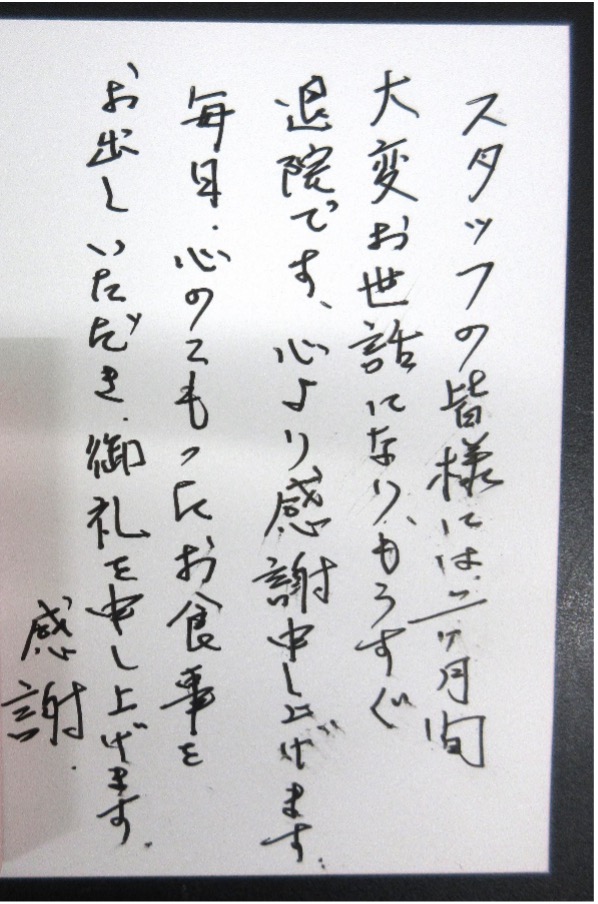 スタッフの皆様には、二ヶ月間
大変お世話になり、もうすぐ
退院です、心より感謝申し上げます。
毎日、心のこもったお食事を
お出しいただき、御礼を申し上げます。
感謝